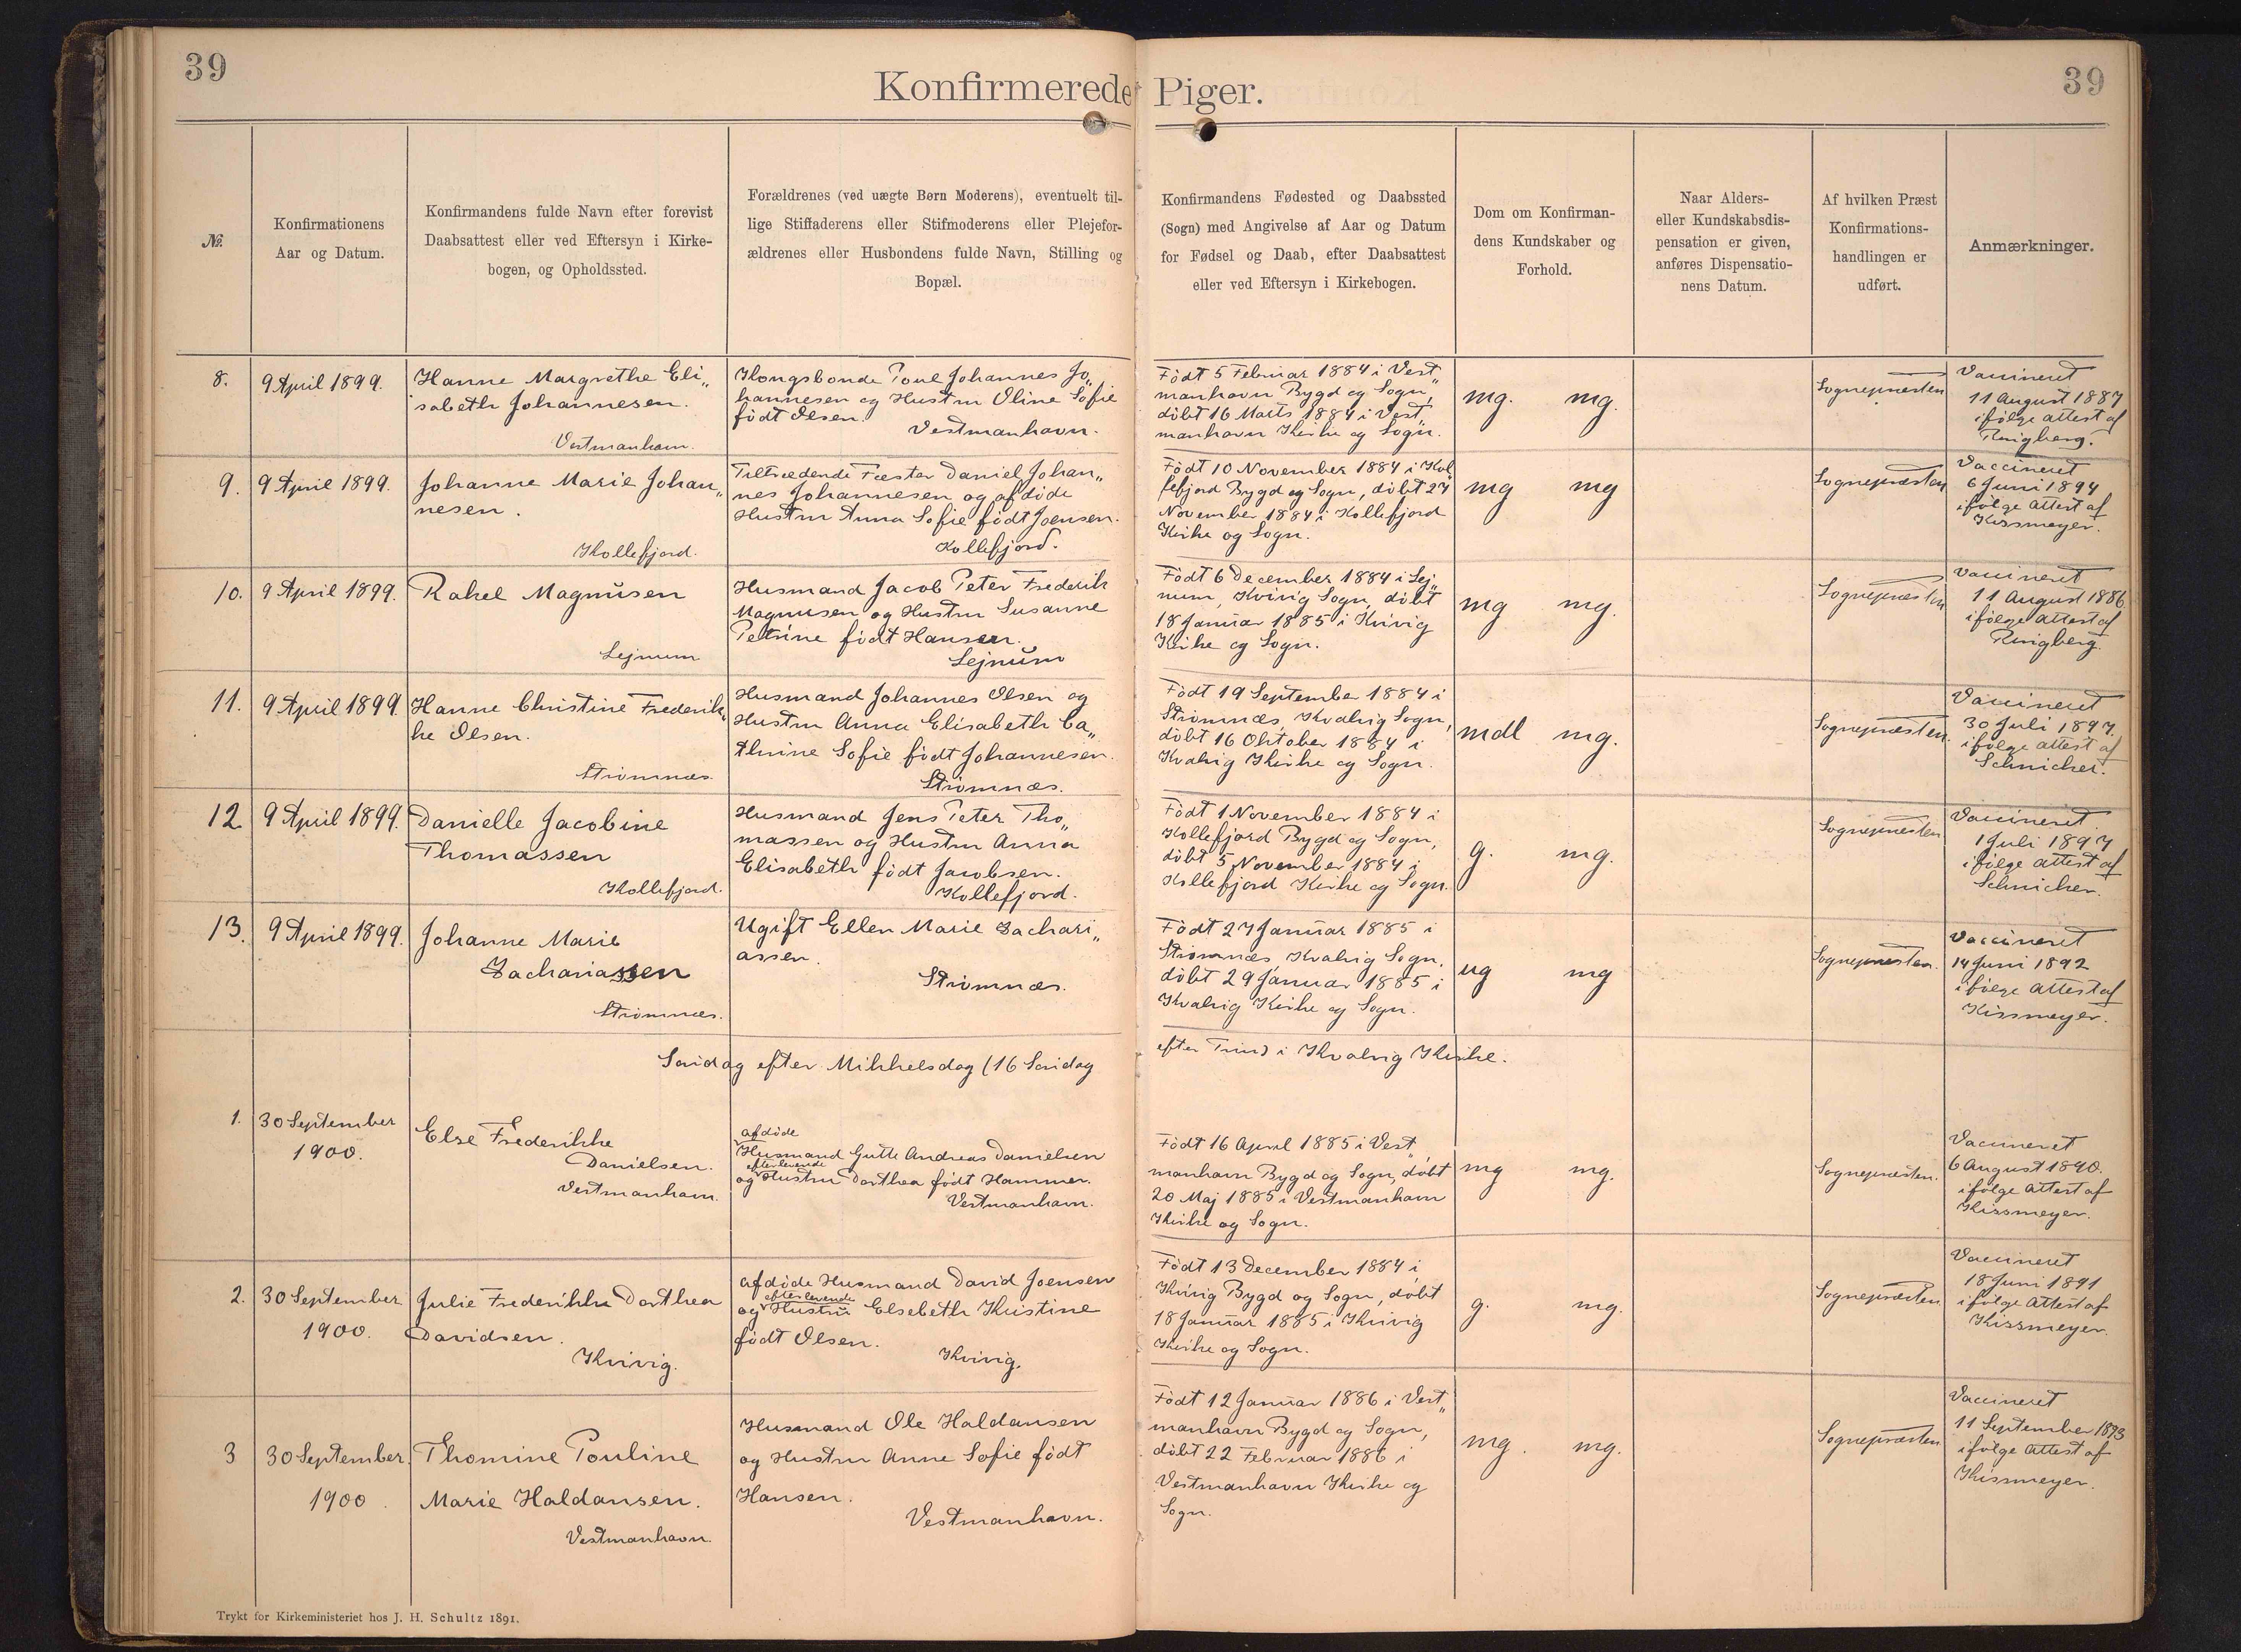 39
39
Konfirmerede Piger.
№.
Konfirmationens
Aar og Datum.
Konfirmandens fulde Navn efter forevist
Daabsattest eller ved Eftersyn i Kirke-
bogen, og Opholdssted.
Forældrenes (ved uægte Børn Moderens), eventuelt til-
lige Stiffaderens eller Stifmoderens eller Plejefor-
ældrenes eller Husbondens fulde Navn, Stilling og
Bopæl.
Konfirmandens Fødested og Daabssted
(Sogn) med Angivelse af Aar og Datum
for Fødsel og Daab, efter Daabsattest
eller ved Eftersyn i Kirkebogen.
Dom om Konfirman-
dens Kundskaber og
Forhold.
Naar Alders-
eller Kundskabsdis-
pensation er given,
anføres Dispensatio-
nens Datum.
Af hvilken Præst
Konfirmations-
handlingen er
udført.
Anmærkninger.
8.
9 April 1899.
Hanne Margrethe Eli„
sabeth Johannesen.
Vestmanhavn.
Kongsbonde Poul Johannes Jo„
hannesen og Hustru Oline Sofie
født Olsen.
Vestmanhavn.
Født 5 Februar 1884 i Vest„
manhavn Bygd og Sogn,
døbt 16 Marts 1884 i Vest„
manhavn Kirke og Sogn.
mg. mg.
Sognepræsten
Vaccineret
11 August 1887
ifølge attest af
Ringberg.
9.
9 April 1899.
Johanne Marie Johan„
nesen.
Kollefjord.
Tiltrædende Fæster Daniel Johan„
nes Johannesen og afdøde
Hustru Anna Sofie født Joensen.
Kollefjord.
Født 10 November 1884 i Kol„
lefjord Bygd og Sogn, døbt 27
November 1884 i Kollefjord
Kirke og Sogn.
mg mg
Sognepræsten
Vaccineret
6 Juni 1894
ifølge Attest af
Kissmeyer.
10.
9 April 1899.
Rakel Magnusen
Lejnum
Husmand Jacob Peter Frederik
Magnusen og Hustru Susanne
Petrine født Hansen.
Lejnum
Født 6 December 1884 i Lej„
num, Kvivig Sogn, døbt
18 Januar 1885 i Kvivig
Kirke og Sogn.
mg mg.
Sognepræsten
Vaccineret
11 August 1886
ifølge Attest af
Ringberg.
11.
9 April 1899.
Hanne Christine Frederik„
ke Olsen.
Strømnæs.
Husmand Johannes Olsen og
Hustru Anna Elisabeth Ca„
thrine Sofie født Johannesen.
Strømnæs.
Født 19 September 1884 i
Strømnæs, Kvalvig Sogn,
døbt 16 Oktober 1884 i
Kvalvig Kirke og Sogn.
mdl mg.
Sognepræsten.
Vaccineret
30 Juli 1897.
ifølge attest af
12
9 April 1899.
Danielle Jacobine
Thomassen
Kollefjord.
Husmand Jens Peter Tho„
massen og Hustru Anna
Elisabeth født Jacobsen.
Kollefjord.
Født 1 November 1884 i
Kollefjord Bygd og Sogn,
døbt 5 November 1884 i
Kollefjord Kirke og Sogn.
g. mg.
Sognepræsten
Vaccineret
1 Juli 1897
ifølge attest af
13.
9 April 1899.
Johanne Marie
Zachariassen
Strømnæs.
Ugift Ellen Marie Zachari„
assen.
Strømnæs.
Født 27 Januar 1885 i
Strømnæs Kvalvig Sogn,
døbt 29 Januar 1885 i
Kvalvig Kirke og Sogn.
ug mg
Sognepræsten.
Vaccineret
14 Juni 1892
ifølge Attest af
Kissmeyer.
Søndag efter Mikkelsdag (16 Søndag efter Trin) i Kvalvig Kirke.
1.
30 September
1900.
Else Frederikke
Danielsen.
Vestmanhavn.
afdøde
Husmand Gutte Andreas Danielsen
efterlevende
og Hustru Dorthea født Hammer.
Vestmanhavn.
Født 16 April 1885 i Vest„
manhavn Bygd og Sogn, døbt
20 Maj 1885 i Vestmanhavn
Kirke og Sogn.
mg mg.
Sognepræsten.
Vaccineret
6 August 1890.
ifølge Attest af
Kissmeyer.
2.
30 September
1900.
Julie Frederikke Dorthea
Davidsen.
Kvivig.
afdøde Husmand David Joensen
efterlevende
og Hustru Elsebeth Kristine
født Olsen.
Kvivig.
Født 13 December 1884 i
Kvivig Bygd og Sogn, døbt
18 Januar 1885 i Kvivig
Kirke og Sogn.
g. mg.
Sognepræsten
Vaccineret
18 Juni 1891
ifølge Attest af
Kissmeyer.
3
30 September
1900.
Thomine Pouline
Marie Haldansen.
Vestmanhavn.
Husmand Ole Haldansen
og Hustru Anne Sofie født
Hansen.
Vestmanhavn.
Født 12 Januar 1886 i Vest„
manhavn Bygd og Sogn,
døbt 22 Februar 1886 i
Vestmanhavn Kirke og
Sogn.
mg. mg.
Sognepræsten
Vaccineret
11 September 1893
ifølge Attest af
Kissmeyer.
Trykt for Kirkeministeriet hos J. H. Schultz 1891.